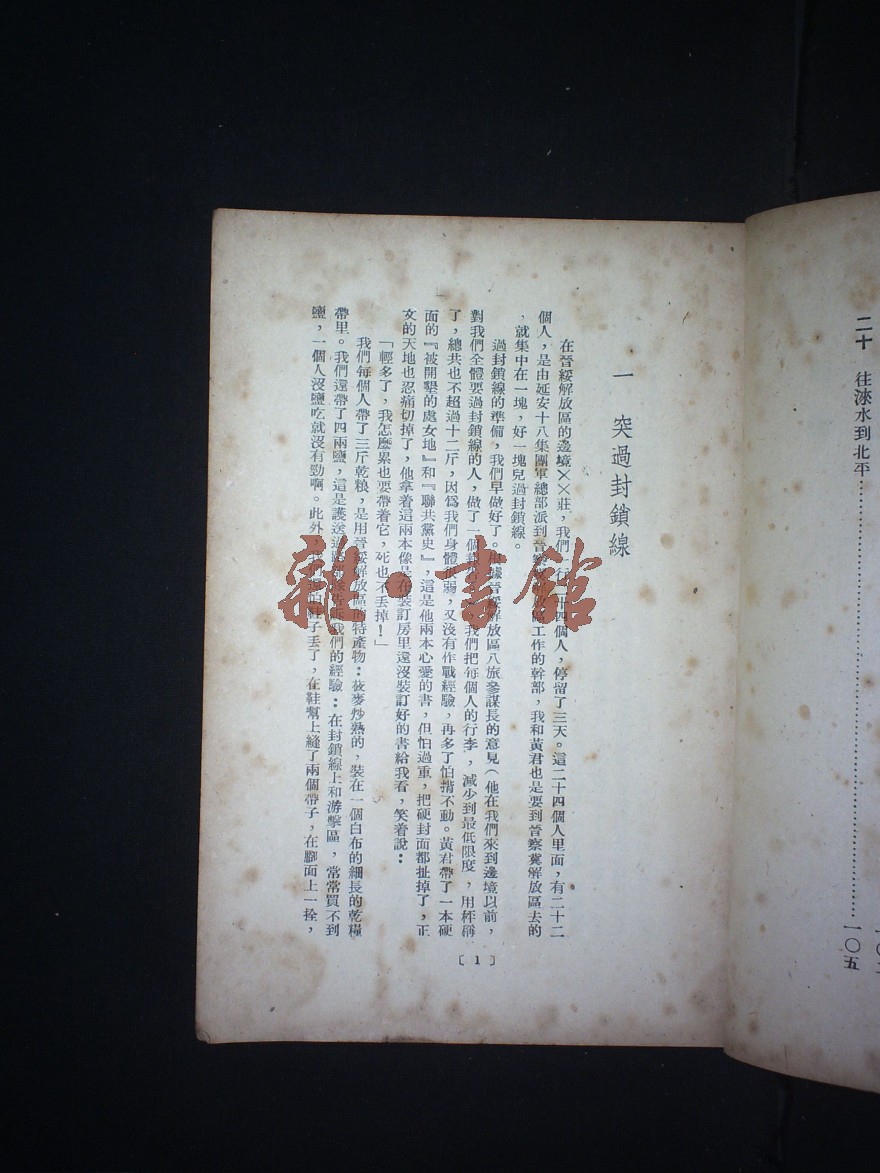 二十　往淶水到北平……一〇五
一　突過封鎖線
在晉綏解放區的邊境××莊，我們一行二十四個人，停留了三天。這二十四個人里面，有二十二
個人，是由延安十八集團軍總部派到晉察冀解放區工作的幹部，我和黃君也是要到晉察冀解放區去的
，就集中在一塊，好一塊兒過封鎖線。
過封鎖線的準備，我們早做好了。根據晉綏解放區八旅參謀長的意見（他在我們來到邊境以前，
對我們全體要過封鎖線的人，做了一個，我們把每個人的行李，減少到最低限度，用秤稱
了，總共也不超過十二斤，因爲我們身體很弱，又沒有作戰經驗，再多了怕揹不動。黃君帶了一本硬
面的『被開墾的處女地』和『聯共黨史』，這是他兩本心愛的書，但怕過重，把硬封面都扯掉了，正
文的天地也忍痛切掉了，他拿着這兩本像是在裝訂房里還沒裝訂好的書給我看，笑着說：
「輕多了，我怎麼累也要帶着它，死也不丟掉！」
我們每個人帶了三斤乾粮，是用晉綏解放區的特產物：莜麥炒熟的，裝在一個白布的細長的乾糧
帶里。我們還帶了四兩鹽，這是護送我們的經驗：在封鎖線上和游擊區，常常買不到
鹽，一個人沒鹽吃就沒有勁啊。此外，我們怕鞋子丟了，在鞋幫上縫了兩個帶子，在腳面上一拴，
〔1〕
雜·書館